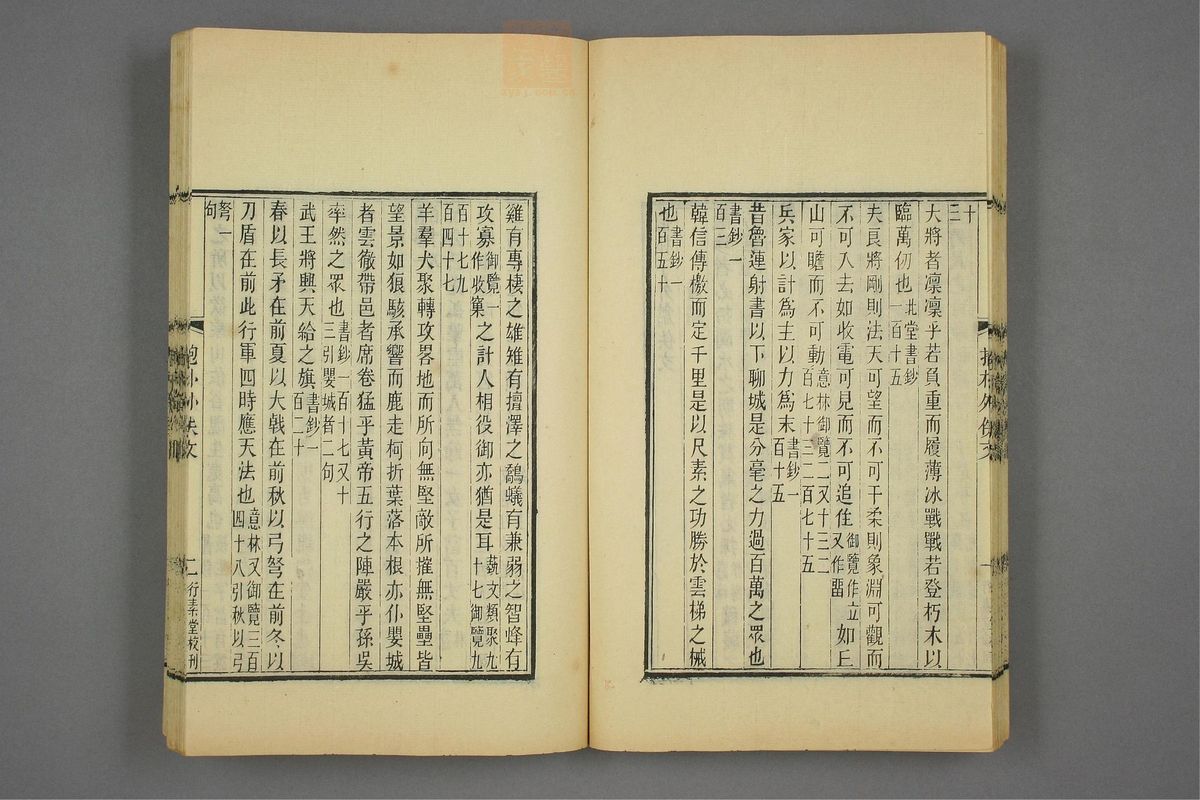 十三
大將者凛凛乎若負重而履薄冰戰戰若登朽木以
臨萬仞也北堂書鈔一百十五
夫良將剛則法天可望而不可干柔則象淵可觀而
不可入去如收電可見而不可追住御覽作立又作畱如丘
山可瞻而不可動意林御覽二又十三二百七十三二百七十五
兵家以計爲主以力爲末書鈔一百十五
昔魯連射書以下聊城是分毫之力過百萬之眾也
書鈔一百三
韓信傳檄而定千里是以尺素之功勝於雲梯之械
也書鈔一百五十
雞有專棲之雄雉有擅澤之鷮蟻有兼弱之智蜂有
攻寡御覽一作收窠之計人相役御亦猶是耳藝文類聚九十七御覽九
百十七九百四十七
羊羣犬聚轉攻畧地而所向無堅敵所摧無堅壘皆
望景如狼駭承響而鹿走柯折葉落本根亦仆嬰城
者雲徹帶邑者席卷猛乎黃帝五行之陣嚴乎孫吳
率然之眾也書鈔一百十七又十三引嬰城者二句
武王將興天給之旗書鈔一百二十
春以長矛在前夏以大戟在前秋以弓弩在前冬以
刀盾在前此行軍四時應天法也意林又御覽三百四十八引秋以弓
弩一句
二
行素堂校刊